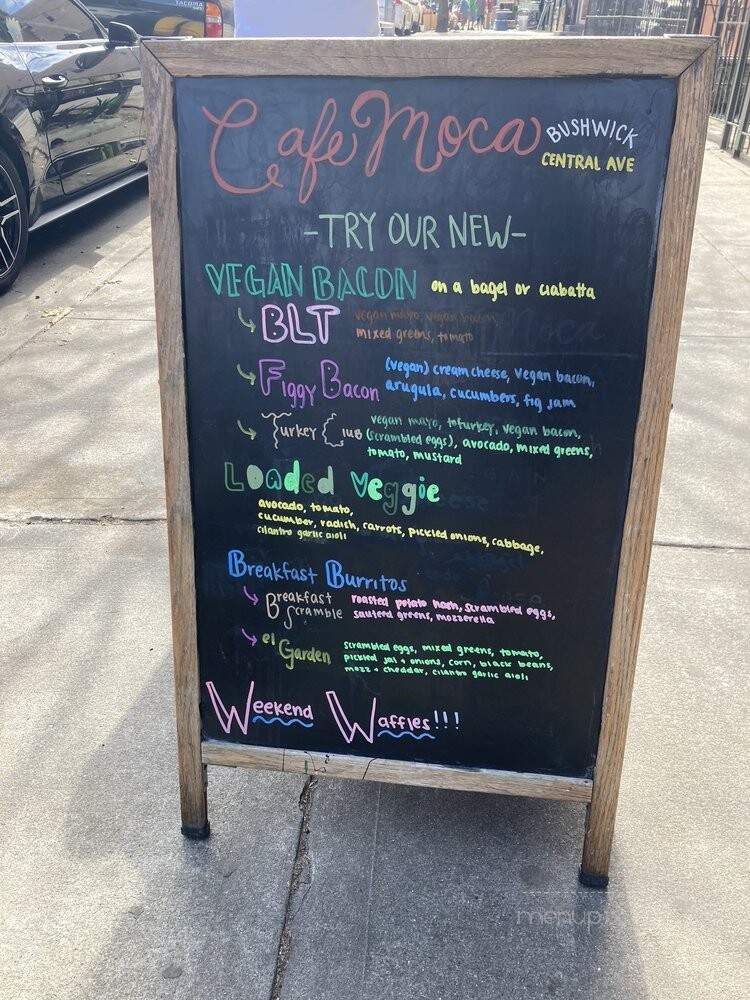 TACOMA
Cafe Moca
BUSHWICK
CENTRAL AVE
-TRY OUR NEW-
VEGAN BACON on a bagel or ciabatta
BLT vegan mayo, vegan bacon,
mixed greens, tomato
Figgy Bacon (vegan) cream cheese, vegan bacon,
arugula, cucumbers, fig jam
Turkey Club vegan mayo, tofurkey, vegan bacon,
(scrambled eggs), avocado, mixed greens,
tomato, mustard
Loaded Veggie
avocado, tomato,
cucumber, radich, carrots, pickled onions, cabbage,
cilantro garlic aioli
Breakfast Burritos
Breakfast Scramble roasted potato hash, scrambled eggs,
sauteed greens, mozzerella
el Garden scrambled eggs, mixed greens, tomato,
pickled jal + onions, corn, black beans,
mozz + cheddar, cilantro garlic aioli
Weekend Waffles!!!